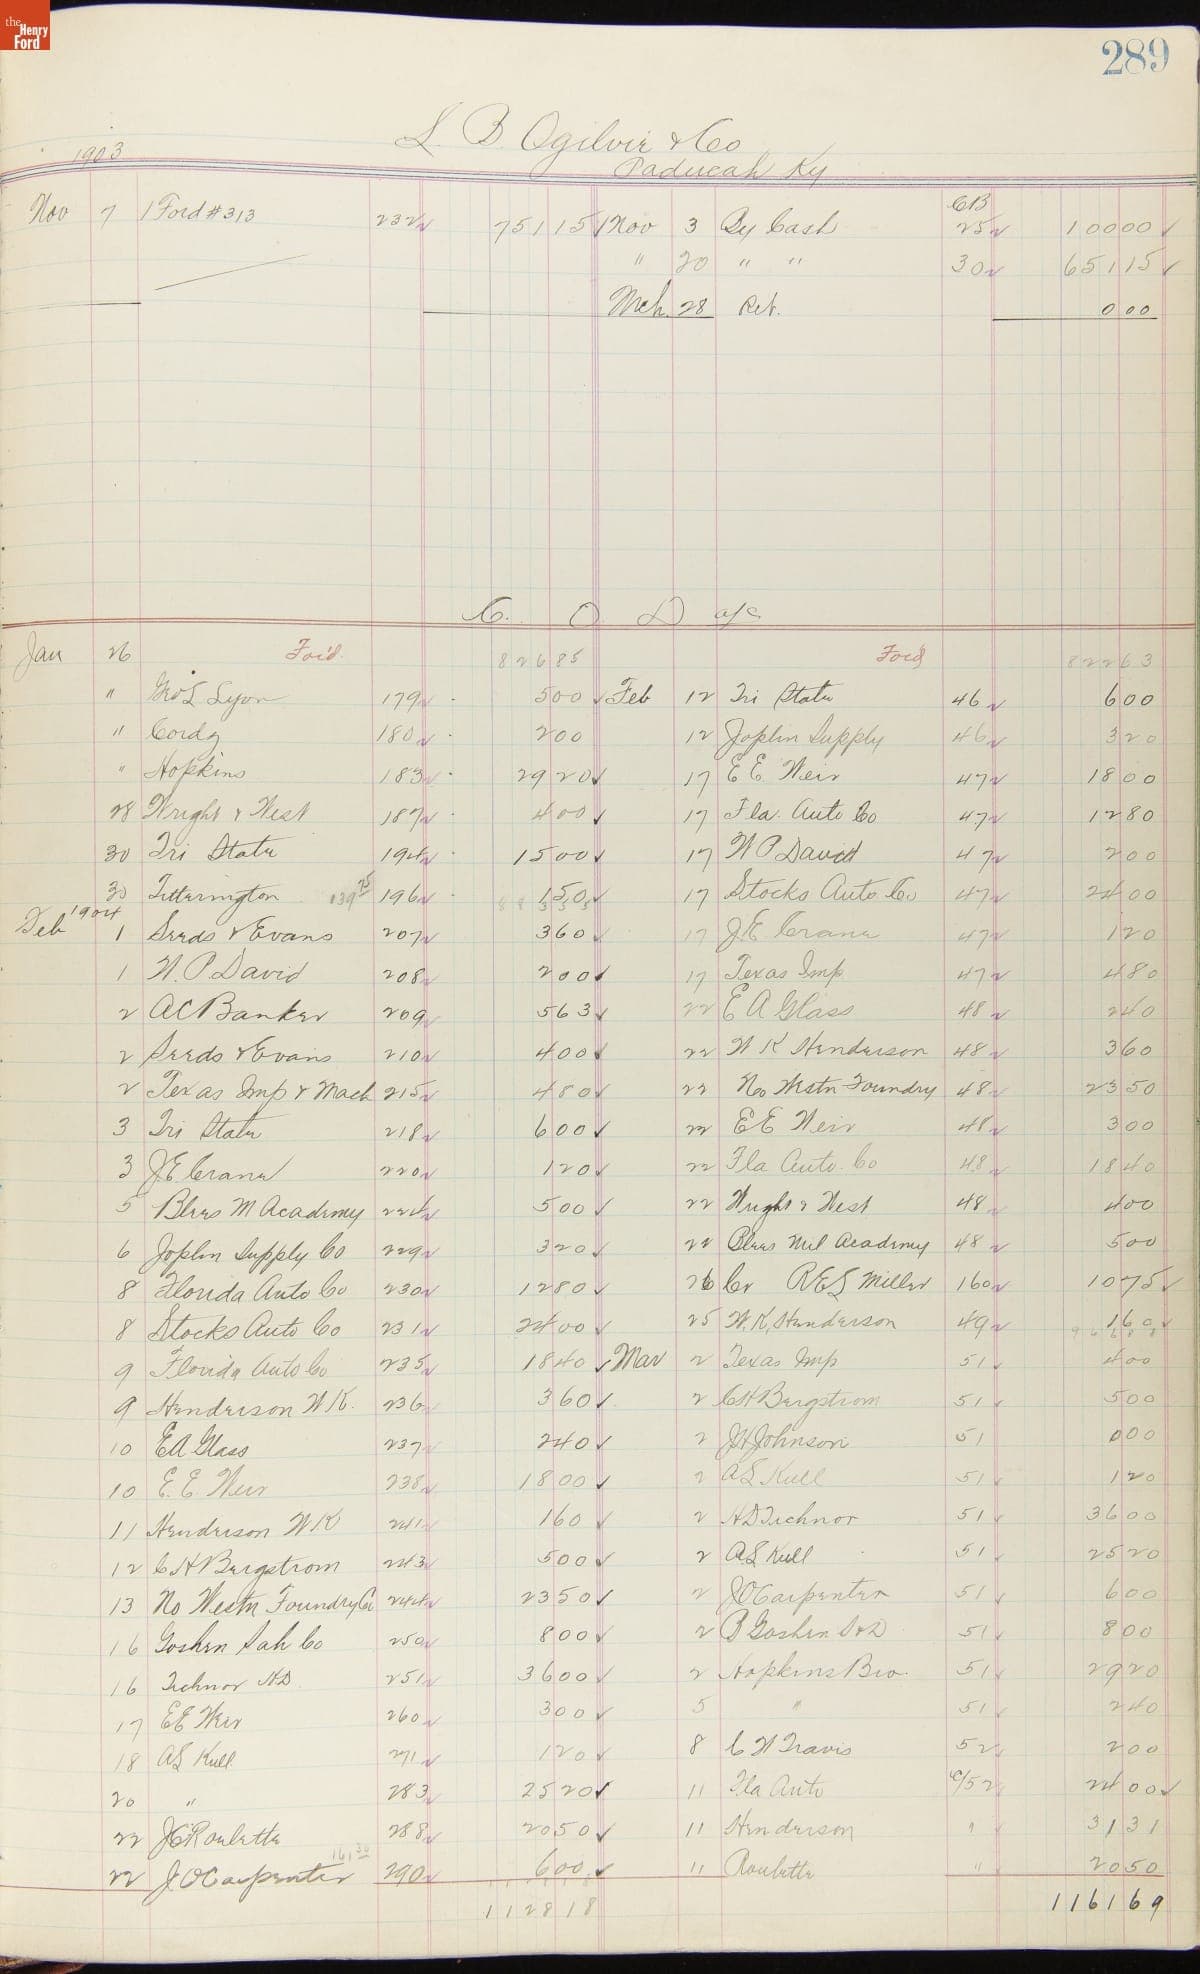 the Henry Ford
289
L. B. Ogilvie & Co
1903 Paducah Ky
Nov 7 1 Ford #313 232 751 15 Nov 3 By Cash CB 25 100 00
" 20 " " 30 651 15
Mch. 28 Ret. 0 00
C. O. D a/c
Jan 26 For'd. 826 85 For'd 822 63
" Geo L Lyon 179 5 00 Feb 12 Tri State 46 6 00
" Cordz 180 2 00 12 Joplin Supply 46 3 20
" Hopkins 183 29 20 17 E E Weir 47 18 00
28 Wright & West 187 4 00 17 Fla. Auto Co 47 12 80
30 Tri State 194 15 00 17 W P David 47 2 00
30 Titterington 139 75 196 1 50 17 Stocks Auto Co 47 24 00
Feb 1904 1 Seeds & Evans 207 3 60 17 J E Crane 47 1 20
1 W. P David 208 2 00 17 Texas Imp 47 4 80
2 A C Banker 209 5 63 22 E A Glass 48 2 40
2 Seeds & Evans 210 4 00 22 W K Henderson 48 3 60
2 Texas Imp & Mach 215 4 80 22 No Westn Foundry 48 23 50
3 Tri State 218 6 00 22 E E Weir 48 3 00
3 J E Crane 220 1 20 22 Fla Auto. Co 48 18 40
5 Blees M Academy 224 5 00 22 Wright & West 48 4 00
6 Joplin Supply Co 229 3 20 22 Blees Mil Academy 48 5 00
8 Florida Auto Co 230 12 80 26 Cr R E S Miller 160 10 75
8 Stocks Auto Co 231 24 00 25 W. K. Henderson 49 1 60
9 Florida Auto Co 235 18 40 Mar 2 Texas Imp 51 4 00
9 Henderson W K. 236 3 60 2 C H Bergstrom 51 5 00
10 E A Glass 237 2 40 2 J H Johnson 51 0 00
10 E. E. Weir 238 18 00 2 A S Kull 51 1 20
11 Henderson W K 241 1 60 2 H D Tichnor 51 36 00
12 C H Bergstrom 243 5 00 2 A S Kull 51 25 20
13 No Westn Foundry Co 244 23 50 2 J O Carpenter 51 6 00
16 Goshen Sah Co 250 8 00 2 Goshen S & D 51 8 00
16 Tichnor H D. 251 36 00 2 Hopkins Bro. 51 29 20
17 E E Weir 260 3 00 5 " 51 2 40
18 A S Kull. 271 1 20 8 C W Travis 52 2 00
20 " 283 25 20 11 Fla Auto c/52 24 00
22 J C Roulette 288 20 50 11 Henderson " 31 31
22 J O Carpenter 161 30 290 6 00 11 Roulette " 20 50
1128 18 1161 69